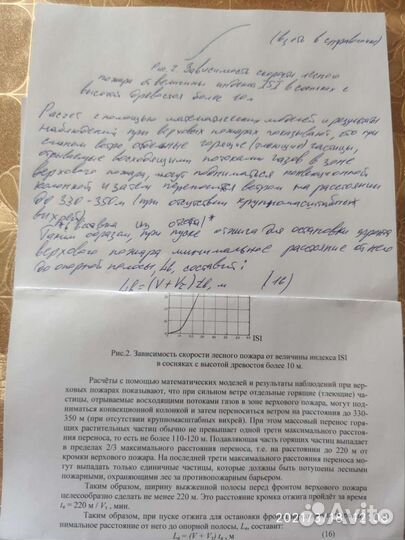 (взять в справочнике)
Рис. 2. Зависимость скорости лесного
пожара от величины индекса ISI в сосняках с
высотой древостоя более 10 м
Расчет с помощью математических моделей и результаты
наблюдений при верховых пожарах показывают, что при
сильном ветре отдельные горящие (тлеющие) частицы,
отрываемые восходящими потоками газов в зоне
верхового пожара, могут подниматься конвекционной
колонкой и затем переноситься ветром на расстояния
до 330-350м (при отсутствии крупномасштабных
вихрей).
вставка из *
Таким образом, при пуске отжига для остановки фронта
верхового пожара минимальное расстояние от него
до опорной полосы, Lв, составит:
Lв = (V + Vz) tв, м (16)
0 10 20 30 40 50 60
ISI
Рис.2. Зависимость скорости лесного пожара от величины индекса ISI
в сосняках с высотой древостоя более 10 м.
Расчёты с помощью математических моделей и результаты наблюдений при вер-
ховых пожарах показывают, что при сильном ветре отдельные горящие (тлеющие) ча-
стицы, отрываемые восходящими потоками газов в зоне верхового пожара, могут под-
ниматься конвекционной колонкой и затем переноситься ветром на расстояния до 330-
350 м (при отсутствии крупномасштабных вихрей). При этом массовый перенос горя-
щих растительных частиц обычно не превышает одной трети максимального расстоя-
ния переноса, то есть не более 110-120 м. Подавляющая часть горящих частиц выпадает
в пределах 2/3 максимального расстояния переноса, т.е. на расстоянии до 220 м от
кромки верхового пожара. На последней трети максимального расстояния переноса мо-
гут выпадать только единичные частицы, которые должны быть потушены лесными
пожарными, охраняющими лес за противопожарным барьером.
Таким образом, ширину выжженной полосы перед фронтом верхового пожара
целесообразно сделать не менее 220 м. Это расстояние кромка отжига пройдёт за время
tв = 220 м / Vz , мин.
Таким образом, при пуске отжига для остановки фронта
нимальное расстояние от него до опорной полосы, Lв, составит:
Lв = (V + Vz) tв , м (16)
Avito